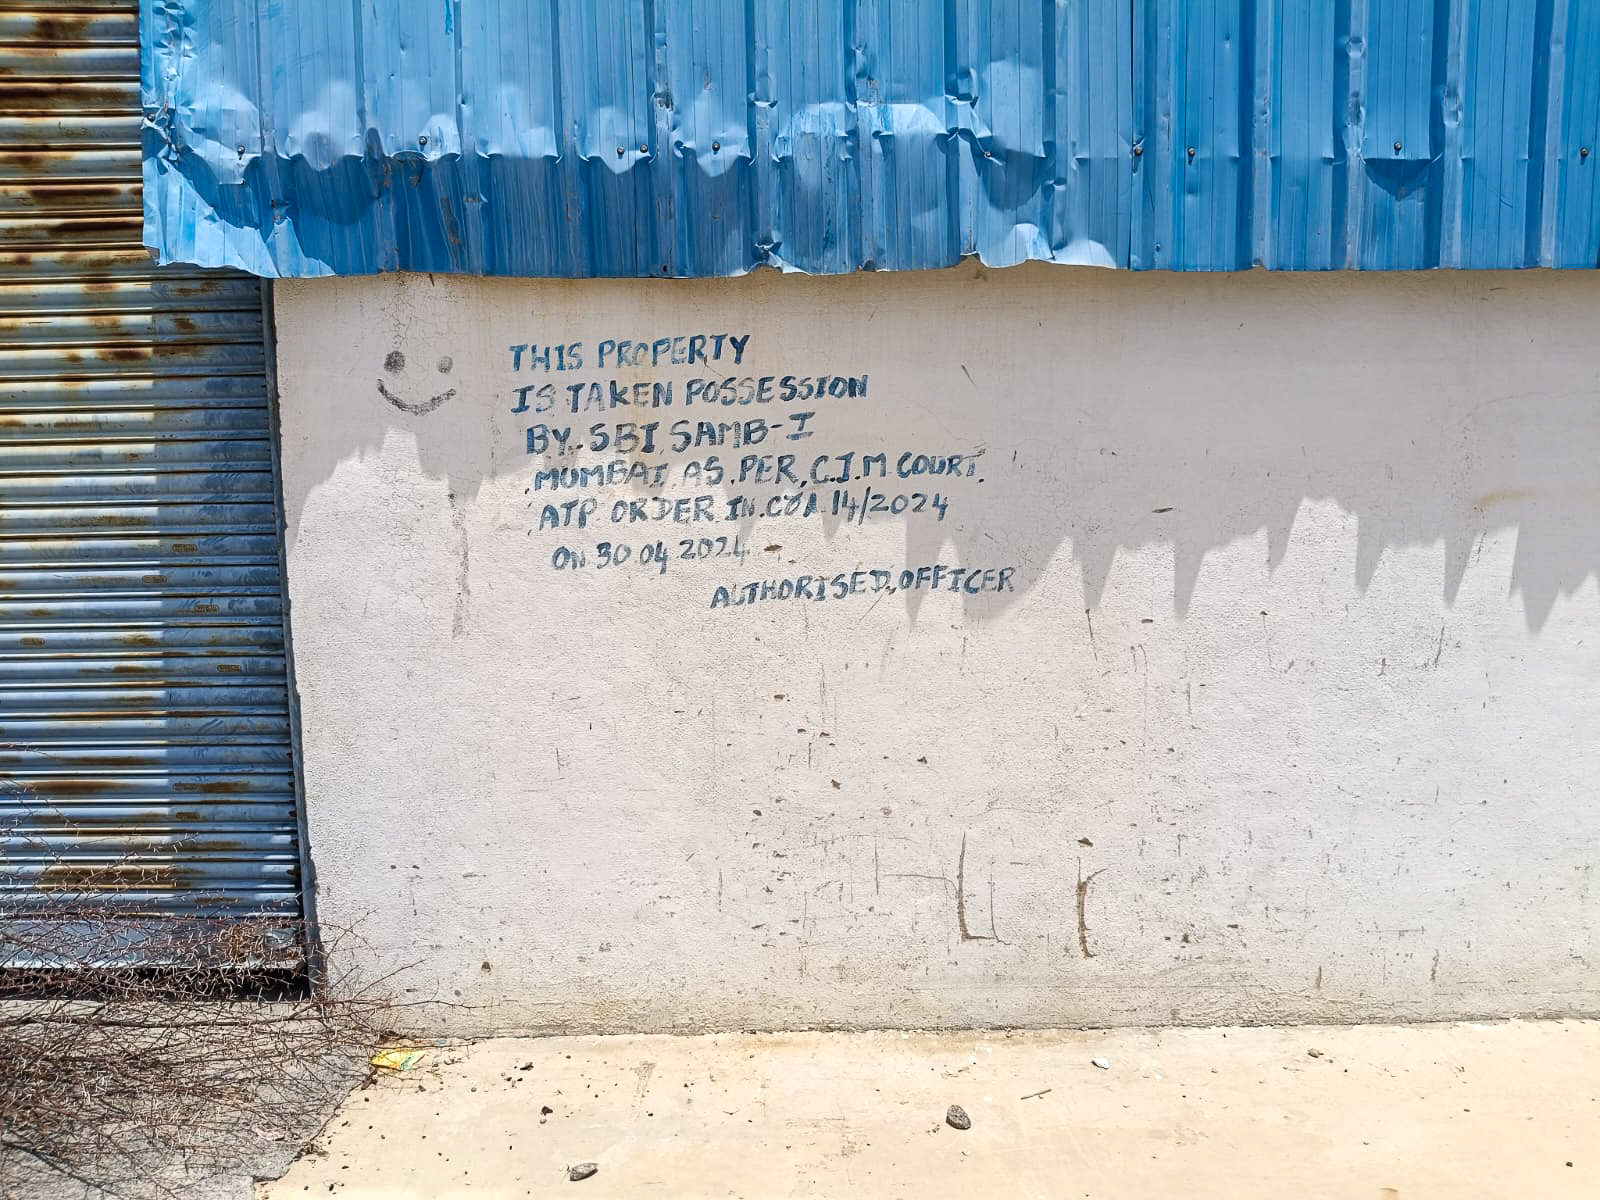 THIS PROPERTY
IS TAKEN POSSESSION
BY. SBI, SAMB-I
MUMBAI, AS. PER, C.J.M COURT.
ATP ORDER IN. 14/2024
ON 30 04 2024
AUTHORISED, OFFICER